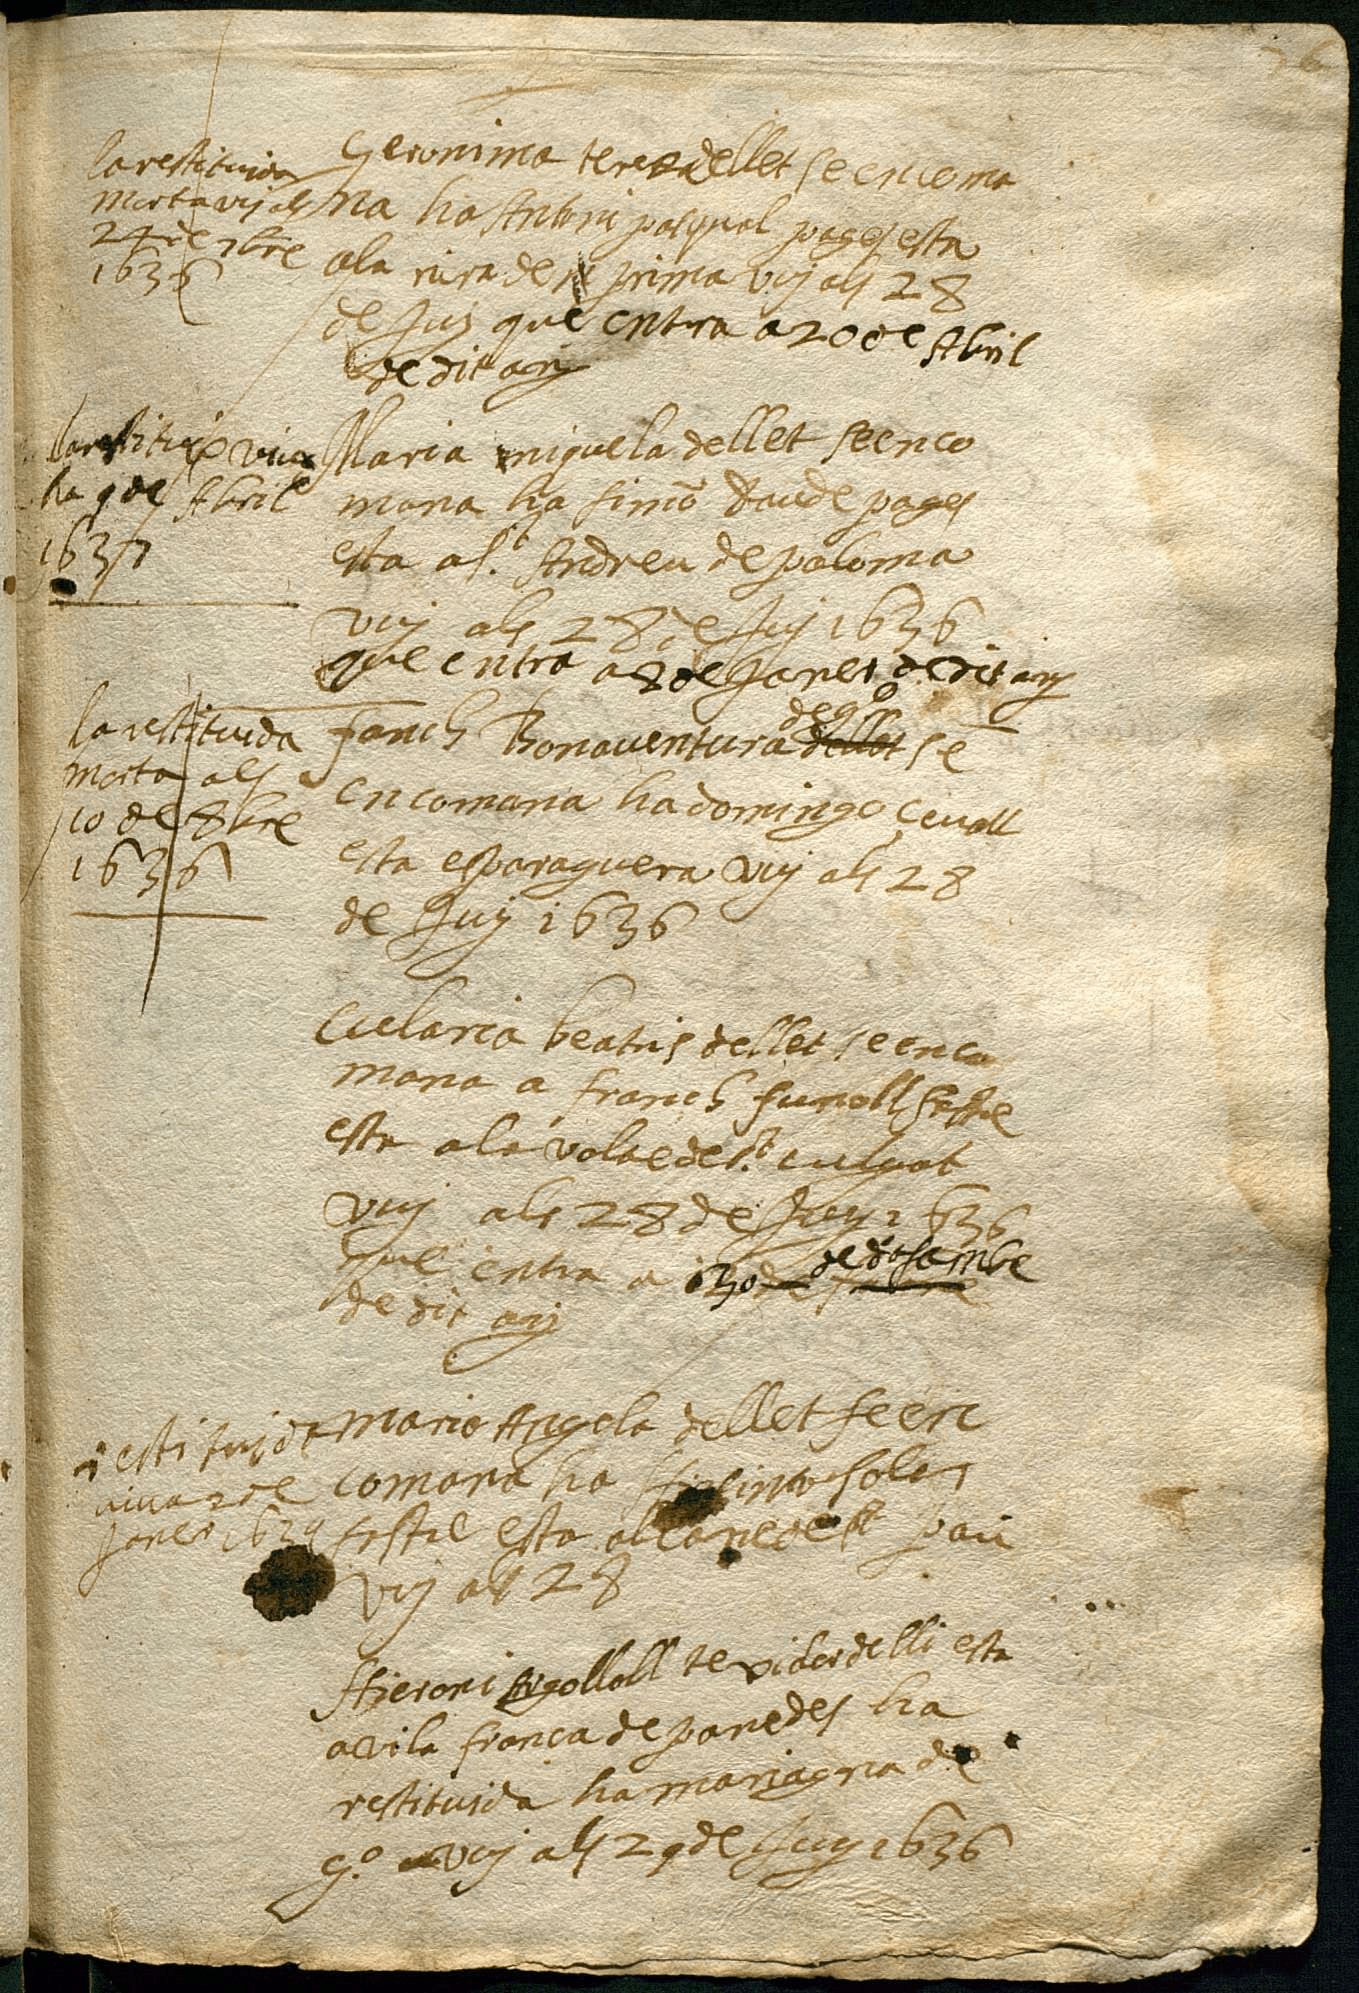 76
la restituida
morta vuj als
24 de 7bre
1636
Geronima teresa dellet se encoma
na ha Antoni pasqual pages esta
a la riera de prima vuj als 28
de Juj que entra a 20 de Abril
de dit anj
la restituj viva
ha 9 de Abril
1637
Maria miquela dellet se enco
mana ha simo pages
esta a St. Andreu de paloma
vuj als 28 de Juj 1636
que entra a 8 de Janer de dit anj
la restituida
morta als
10 de 8bre
1636
franch Bonaventura dellet de go se
encomana ha domingo
esta esparaguera vuj als 28
de Juij 1636
Eularia beatris dellet se enco
mana a franch funoll
esta a la volta de St. culgat
vuj als 28 de Juij 1636
que entra a 30 de desambre
de dit anj
restituida
viva 2 de
Janer 1639
Maria Angela dellet se en
comana ha Hiacinto soler
esta al carre de St pau
vuj als 28
Hieroni texidor de lli esta
a vila franca de panedes ha
restituida ha mariagna de
go vuj als 29 de Juij 1636